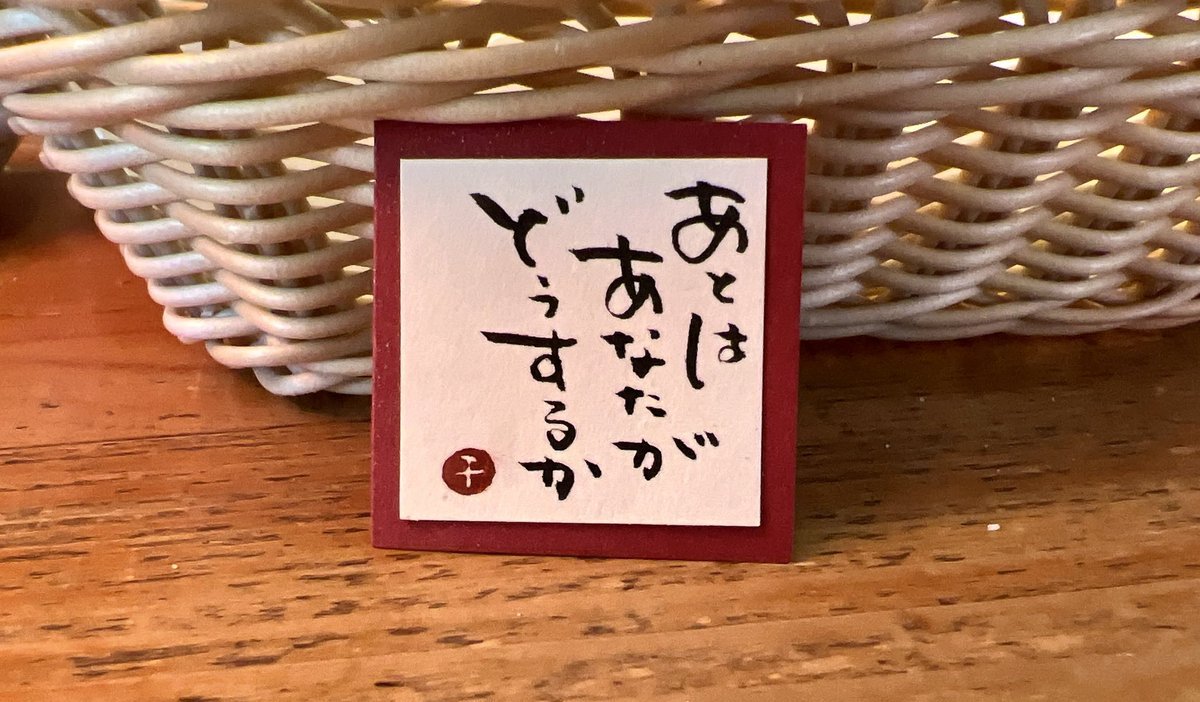 あとは
あなたが
どうするか